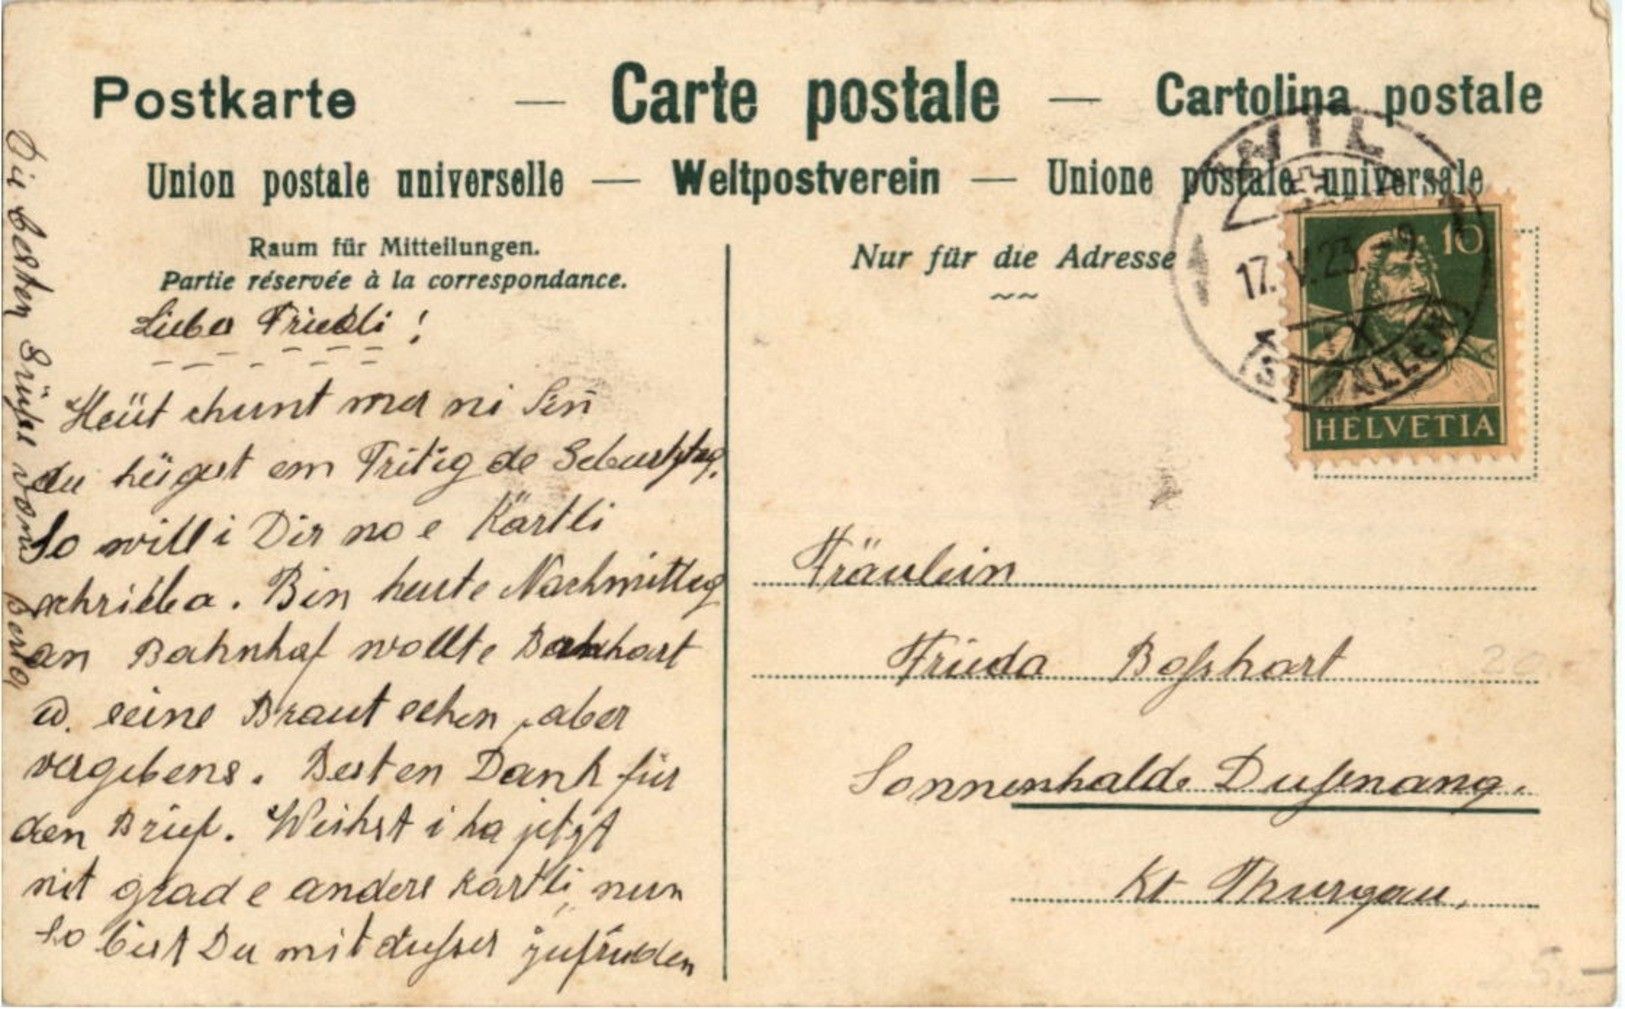 Postkarte — Carte postale — Cartolina postale
Union postale universelle — Weltpostverein — Unione postale universale
Raum für Mitteilungen.
Partie réservée à la correspondance.
Nur für die Adresse
WIL
17. V. 23. – 9
X
(ST. GALLEN)
10
HELVETIA
Liebes Friedli!
Heüt chunt mer ni Sin
du heigest em Fritig de Geburtstag.
So will i Dir no e Kärtli
schriiba. Bin heute Nachmittag
an Bahnhof wollte
u. seine Braut sehen, aber
vergebens. Besten Dank für
den Brief. Weihst i ha jetzt
nit grad e andere Kärtli, nun
so bist Du mit dieser zufrieden
Die besten Grüsse vom Berta
Fräulein
Frieda Boßhart
Sonnenhalde Dußnang.
Kt Thurgau,